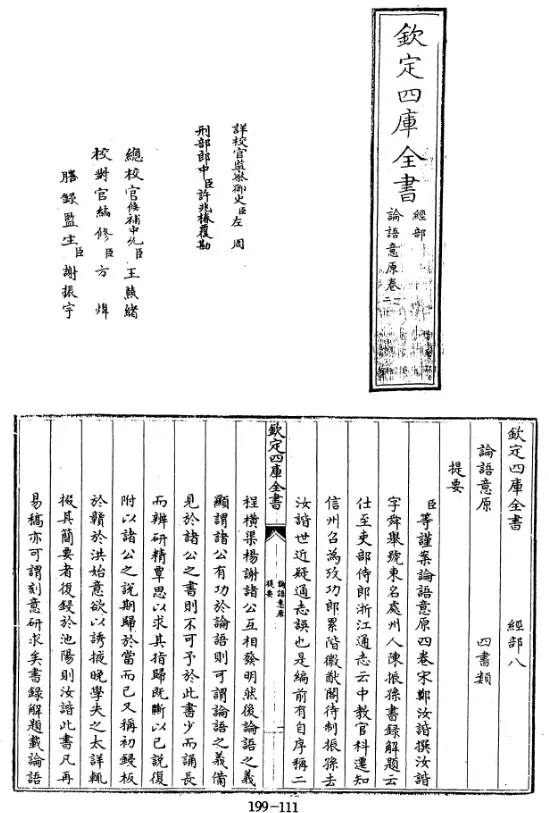 欽定四庫全書
經部
論語意原卷一二
詳校官監察御史臣左周
刑部郎中臣許兆椿覆勘
總校官候補中允臣王燕緒
校對官編修臣方煒
謄錄監生臣謝振宇
欽定四庫全書 經部八
論語意原 四書類
提要
臣等謹案論語意原四卷宋鄭汝諧撰汝諧
字舜舉號東谷處州人陳振孫書録解題云
仕至吏部侍郎浙江通志云中教官科遷知
信州召為攷功郎累階徽猷閣待制振孫去
汝諧世近疑通志誤也是編前有自序稱二
欽定四庫全書
論語意原
提要
一
程横渠楊謝諸公互相發明然後論語之義
顯謂諸公有功於論語則可謂論語之義備
見於諸公之書則不可予於此書少而誦長
而辨研精覃思以求其指歸既斷以己説復
附以諸公之説期歸於當而已又稱初鋟板
於贛於洪始意欲以誘掖晚學失之太詳輒
掇其簡要者復鋟於池陽則汝諧此書凡再
易稿亦可謂刻意研求矣書録解題載論語
199-111